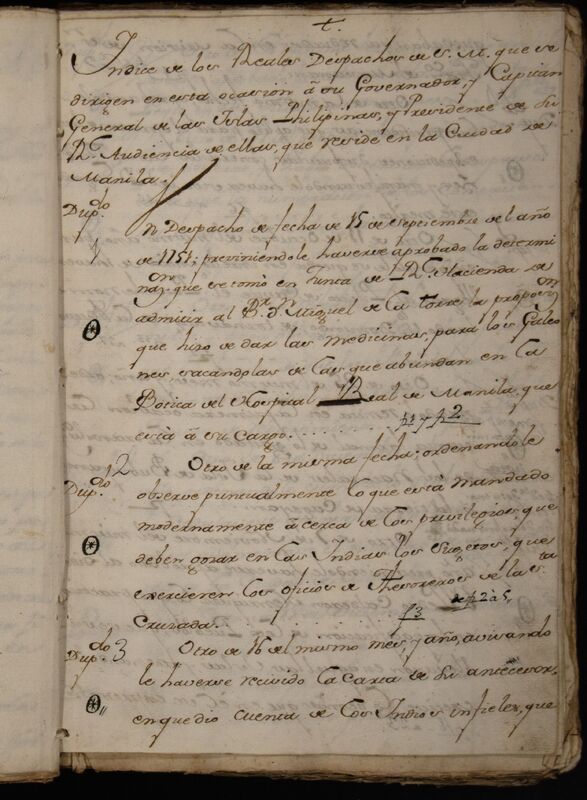 +.
Indice de los Reales Despachos de S. M. que se
dirigen en esta ocasion â su Governador, y Capitan
General de las Islas Philipinas, y Presidente de su
Rl. Audiencia de ellas, que reside en la Ciudad de
Manila.
Dupdo. 1
Vn Despacho de fecha de 15 de septiembre de el año
de 1751; previniendole haverse aprobado la determi
nazon. que se tomò en Junta de Rl. Hacienda de
admitir al Br. Dn. Miguel de la torre la proposon.
que hizo de dar las medicinas, para los Galeo
nes, sacandolas de las que abundan en la
Botica del Hospital Real de Manila, que
està â su cargo. . . . . . . p1 y p2
Dupdo. 2
Otro de la misma fecha; ordenandole
observe puntualmente lo que està mandado
modernamente â cerca de los privilegios, que
deben gozar en las Indias los sugetos, que
exercieren los oficios de Thesoreros de la Sta.
Cruzada. . . . . . . . . . f3 p2 à 5
Dupdo. 3
Otro de 16 del mismo mes, y año, avisando
le haverse recivido la carta de su antecesor,
en que dio cuenta de los Indios infieles, que